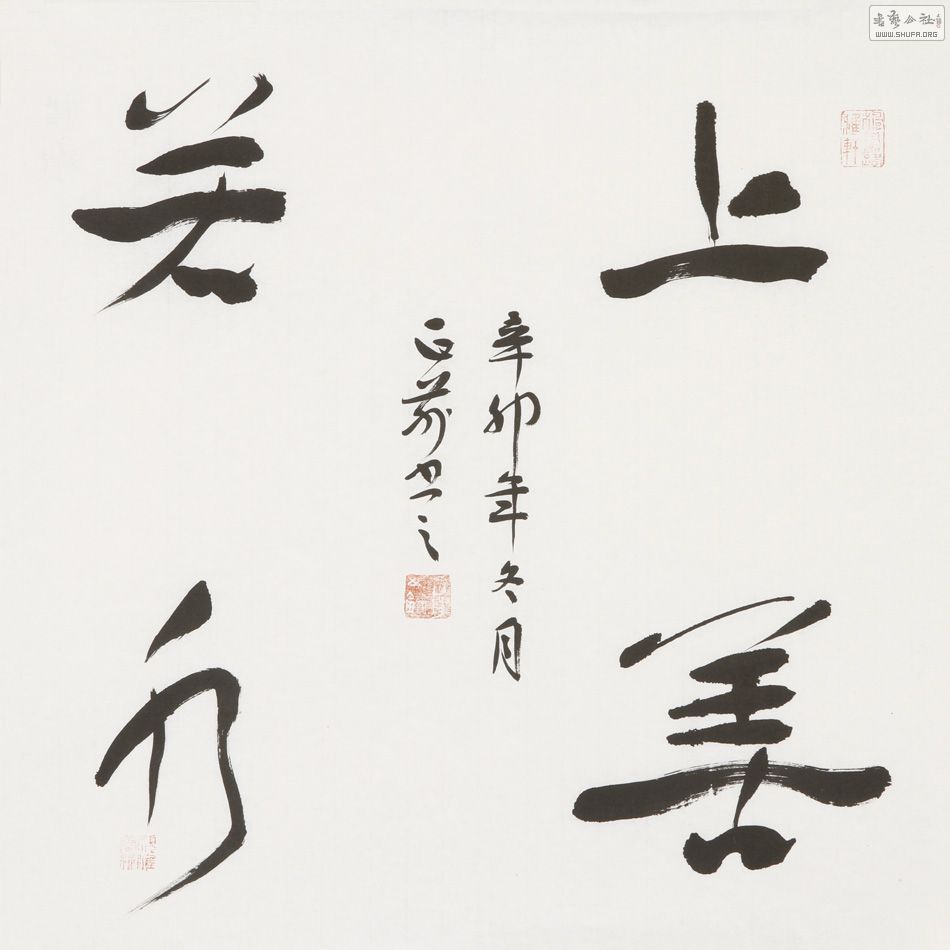 上善
若水
辛卯年冬月
正前书之
书艺公社
WWW.SHUFA.ORG